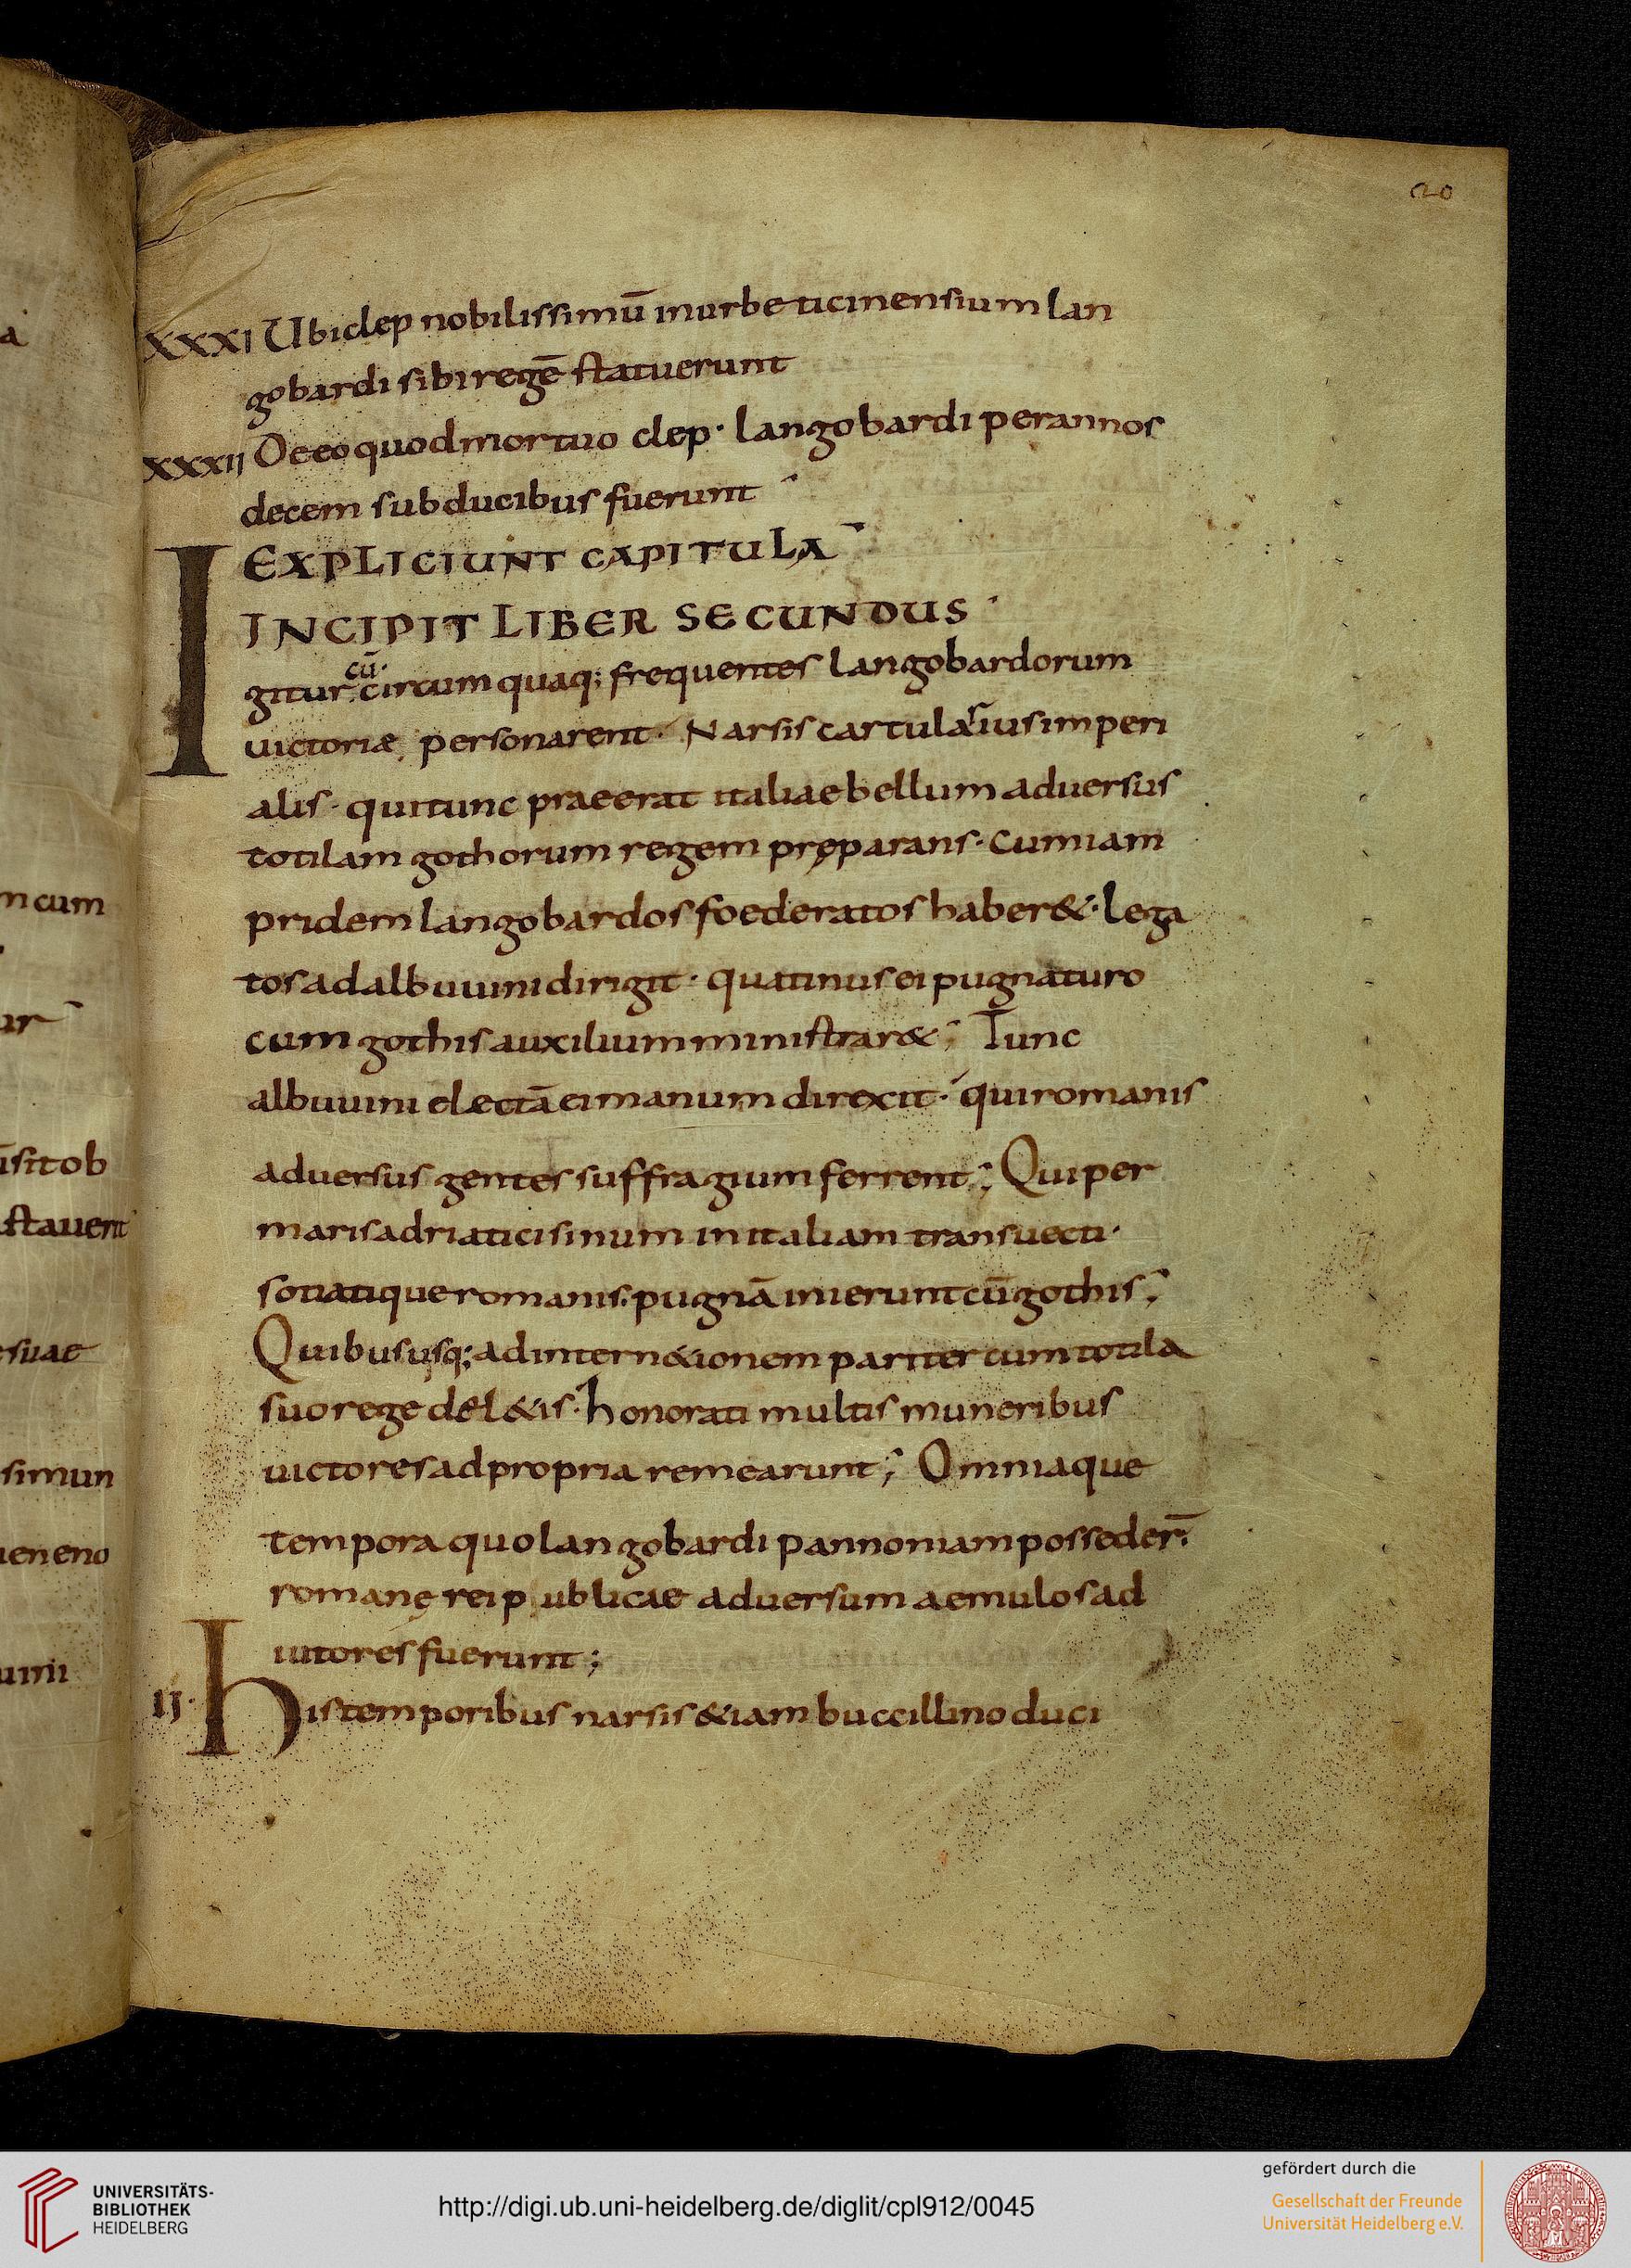 20
XXXI Ubi clep nobilissimū in urbe ticinensium lan
gobardi sibi regē statuerunt
XXXII De eo quod mortuo clep· langobardi per annos
decem sub ducibus fuerunt
EXPLICIUNT CAPITULA
INCIPIT LIBER SECUNDUS
cū·
Igitur circum quaq; frequentes langobardorum
uictoriæ personarent· Narsis cartularius imperi
alis· qui tunc praeerat italiae bellum aduersus
totilam gothorum regem pręparans· cum iam
pridem langobardos foederatos haber&· lega
tos ad albuuini dirigit· quatinus ei pugnaturo
cum gothis auxilium ministrar&; Tunc
albuuini electā ei manum direxit· qui romanis
aduersus gentes suffragium ferrent; Qui per
maris adriatici sinum in italiam transuecti·
sotiatique romanis· pugnā inierunt cū gothis;
Quibus usq; ad intern&ionem pariter cum totila
suo rege del&is· honorati multis muneribus
uictores ad propria remearunt; Omniaque
tempora quo langobardi pannoniam posseder̄·
romanę rei publicae aduersum aemulos ad
iutores fuerunt;
II· His temporibus narsis &iam buccillino duci
a
m cum
ur
sit ob
stauert
suae
simun
ueneno
uini
UNIVERSITÄTS-
BIBLIOTHEK
HEIDELBERG
http://digi.ub.uni-heidelberg.de/diglit/cpl912/0045
gefördert durch die
Gesellschaft der Freunde
Universität Heidelberg e.V.